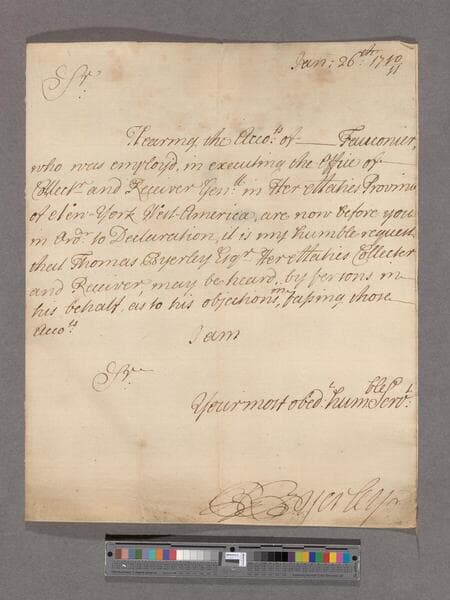 Jan: 26th 1710/11
Sr.
Hearing the Accots of —— Fauconier,
who was employ'd, in executing the Office of
Collectr and Receiver Genll in Her Maties Province
of New-York West-America, are now before you
in Ordr to Declaration, it is my humble request,
that Thomas Byerley Esqr Her Maties Collecter
and Receiver, may be heard, by persons in
his behalf, as to his objections, in passing those
Accots
I am
Sr.
Your most obedt humble Servt:
Byerley